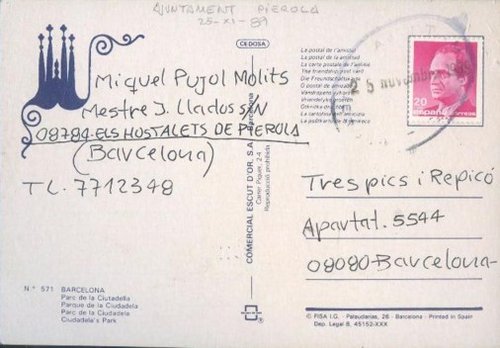 AJUNTAMENT PIEROLA
25-XI-89
CEDOSA
Miquel Pujol Molits
Mestre J. Llados S/N
08784-ELS HOSTALETS DE PIEROLA
(Barcelona)
TL. 7712348
Nº 571 BARCELONA
Parc de la Ciutadella
Parque de la Ciudadela
Parc de la Ciudadela
Ciudadela's Park
COMERCIAL ESCUT D'OR, S.A. Barcelona
Carrer Piquer, 2-4
Reproducció prohibida
La postal de l'amistat
La postal de la amistad
La carte postale de l'amitié
The friendship post card
Die Freundschaftskarte
O postal de amizade
25 novembre 1989
20
España
Tres pics i Repicó
Apartat. 5544
08080-Barcelona-
© FISA I.G. - Palaudarias, 26 - Barcelona - Printed in Spain
Dep. Legal B. 45152-XXX